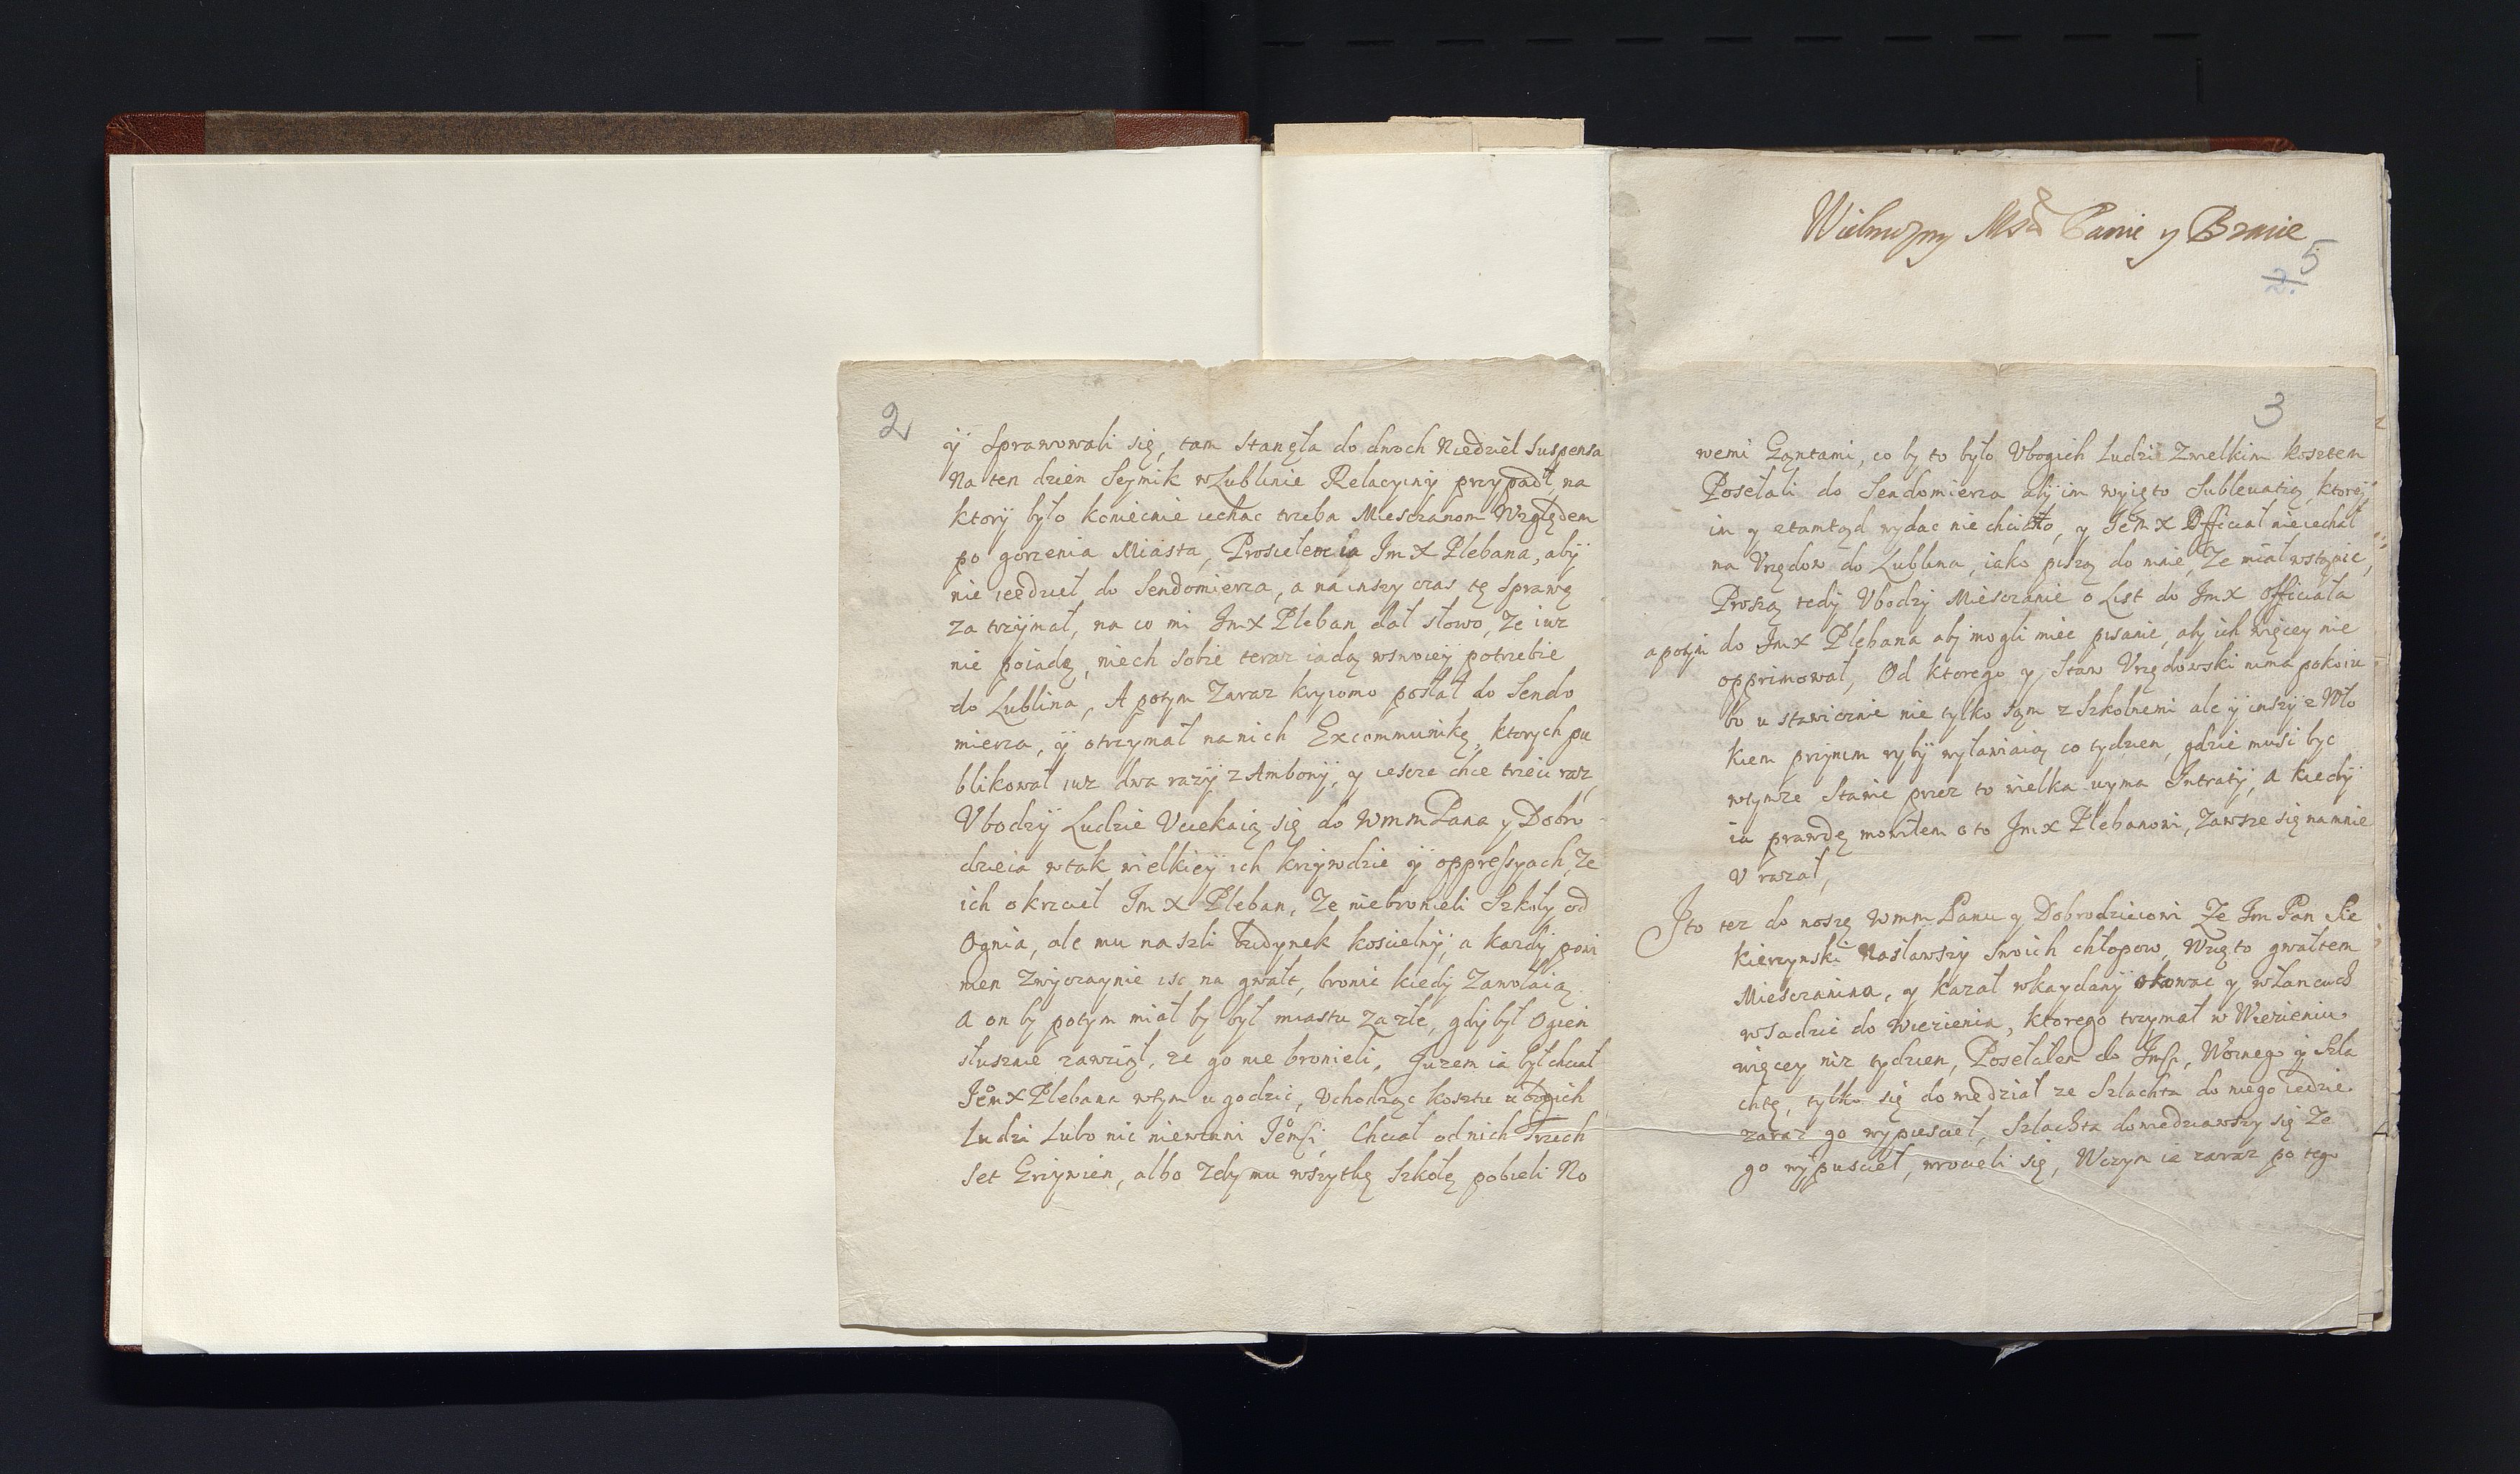 2
ÿ Sprawowali się, tam stanęła do dwoch Niedziel suspensa
Na ten dzien Seymik w Lublinie Relacyiny przypadł, na
ktorÿ było koniecnie iechac trzeba Miesczanom Względem
po gorzenia Miasta, Prosiłem ia Im X Plebana, abÿ
nie ieedził do Sendomierza, a na inszy czas tę sprawę
za trzÿmał, na co mi ImX Pleban dał słowo, Ze iuz
nie poiadę, niech sobie teraz iadą wswoieÿ potrzebie
do Lublina, A potym Zaraz kryiomo posłał do Sendo
mierza, ÿ otrzymał na nich Excommunikę, ktorych pu
blikował iuz dwa razÿ z Ambonÿ, y iescze chce trzeci raz,
Vbodzÿ Ludzie Vciekaią się do WmmPana y Dobro
dzieia wtak wielkieÿ ich krzÿwdzie ÿ oppressyach, Ze
ich okrzcił Im X Pleban, Ze niebronieli Szkoły od
Ognia, ale mu naszli Budynek koscielnÿ, a kazdÿ powi
nien Zwÿczaynie isc na gwałt, bronic kiedÿ Zawołaią
A on by potym miał by był miastu za złe, gdÿ był Ogien
słusznie zawziął, ze go nie bronieli, Juzem ia był chciał
JemX Plebana wtym ugodzic, Vchodząc kosztu ubogich
Ludzi Lubo nic niewinni Jemsci, Chciał od nich Trzech
Set Grzÿwien, albo Zeby mu wszytkę Szkołę pobieli No
Wielmozny Msci Panie y Bracie
5
2.
3
wemi Gąntami, co by to było Vbogich Ludzi Zwielkim kosztem
Posełali do Sendomierza abÿ im wyięto Subleuatią, ktoreÿ
im y ztamtąd wydac nie chciało, y JemX Official nieiechał
na Vrzędow do Lublina, iako piszą do mnie, Ze miał wstąpic,
Proszą tedÿ Vbodzÿ Miesczanie o List do ImX officiała
a potÿm do ImX Plebana abÿ mogli miec pisanie, aby ich więcey nie
opprimował, Od ktorego y Staw Vrzędowski nima pokoiu
bo ustawicznie nie tylko sąm z Szkolnemi ale ÿ inszÿ z Wło
kiem przynim rybÿ wyławiaią co tydzien, gdzie musi byc
wtymze Stawie przez to wielka uyma Intratÿ, A kiedÿ
ia prawdę mowiłem o to ImX Plebanowi, Zawsze się na mnie
V razał,
Ito tez do noszę Wmm Panu y Dobrodzieiowi Ze Im Pan Sie
kierzynski Nasławszÿ swoich chłopow, Wzięto gwałtem
Miesczanina, y kazał wkaydanÿ okowac y włancuch
wsadzic do wiezienia, ktorego trzymał w Wiezieniu
więcey niz tydzien, Posełałem do Imsci, Woznego ÿ Szla
chtę, tylko się dowiedział ze Szlachta do niego iedzie
zaraz go wypusciel, Szlachta dowiedziawszy się Ze
go wÿpusciel, wrocieli się, Wczym ia zaraz po tego